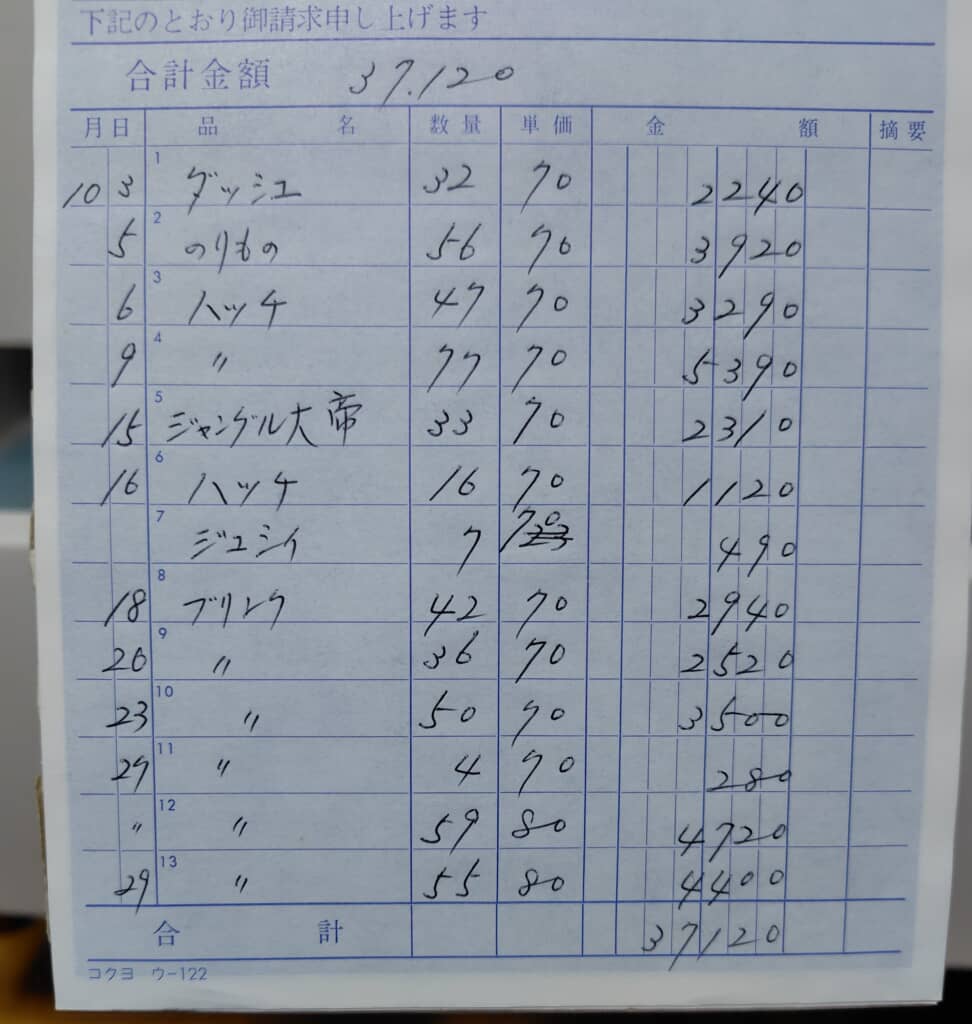 下記のとおり御請求申し上げます
合計金額 37.120
月 日 品 名 数量 単価 金 額 摘要
10 3 1 ダッシュ 32 70 2240
5 2 のりもの 56 70 3920
6 3 ハッチ 47 70 3290
9 4 〃 77 70 5390
15 5 ジャングル大帝 33 70 2310
16 6 ハッチ 16 70 1120
7 ジュシィ 7 70 490
18 8 ブリンク 42 70 2940
20 9 〃 36 70 2520
23 10 〃 50 70 3500
11 〃 4 70 280
〃 12 〃 59 80 4720
29 13 〃 55 80 4400
合 計 37120
コクヨ ウ-122